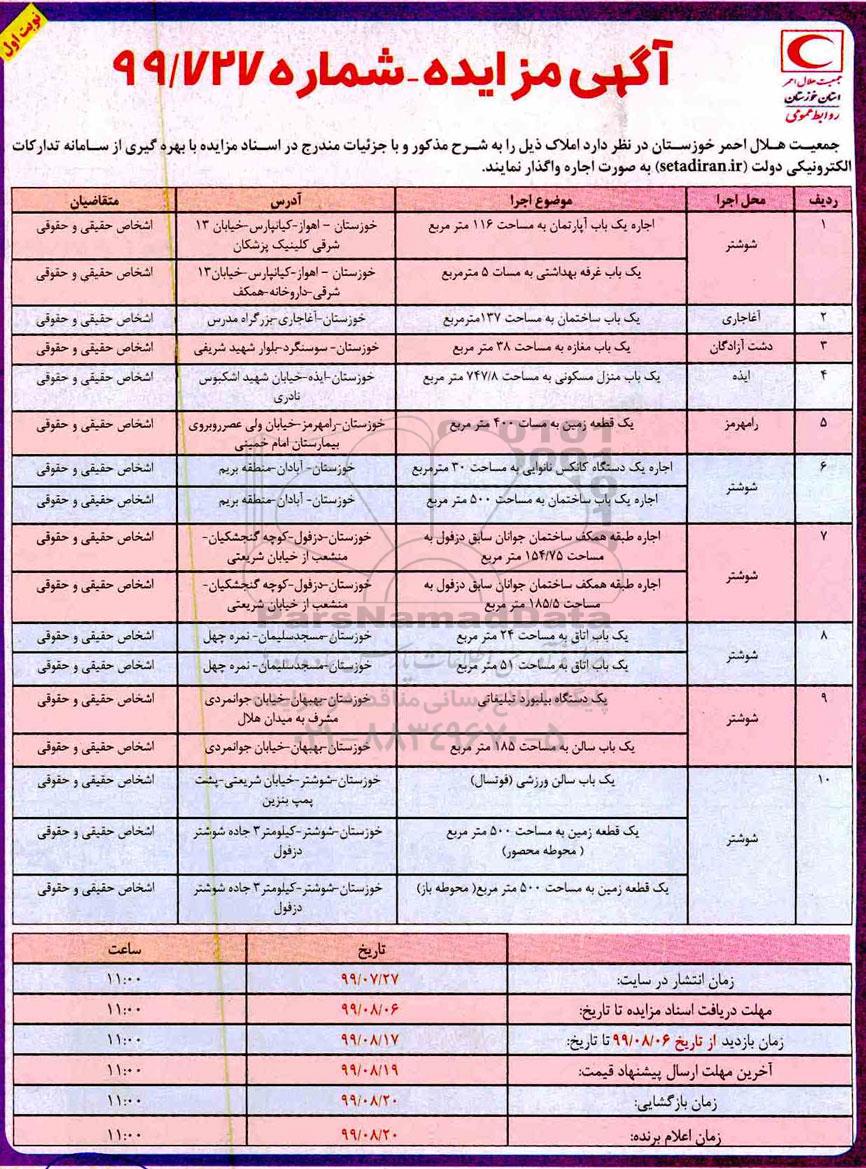 نوبت اول
جمعیت هلال احمر
استان خوزستان
روابط عمومی
آگهی مزایده-شماره ۹۹/۷۲۷
جمعیت هلال احمر خوزستان در نظر دارد املاک ذیل را به شرح مذکور و با جزئیات مندرج در اسناد مزایده با بهره گیری از سامانه تدارکات
الکترونیکی دولت (setadiran.ir) به صورت اجاره واگذار نمایند.
ردیف محل اجرا موضوع اجرا آدرس متقاضیان
۱ شوشتر اجاره یک باب آپارتمان به مساحت ۱۱۶ متر مربع خوزستان - اهواز-کیانپارس-خیابان ۱۳ اشخاص حقیقی و حقوقی
شرقی کلینیک پزشکان
یک باب غرفه بهداشتی به مسات ۵ مترمربع خوزستان - اهواز-کیانپارس-خیابان۱۳ اشخاص حقیقی و حقوقی
شرقی-داروخانه-همکف
۲ آغاجاری یک باب ساختمان به مساحت ۱۳۷مترمربع خوزستان-آغاجاری-بزرگراه مدرس اشخاص حقیقی و حقوقی
۳ دشت آزادگان یک باب مغازه به مساحت ۳۸ متر مربع خوزستان- سوسنگرد-بلوار شهید شریفی اشخاص حقیقی و حقوقی
۴ ایذه یک باب منزل مسکونی به مساحت ۷۴۷/۸ متر مربع خوزستان-ایذه-خیابان شهید اشکبوس اشخاص حقیقی و حقوقی
نادری
۵ رامهرمز یک قطعه زمین به مسات ۴۰۰ متر مربع خوزستان-رامهرمز-خیابان ولی عصرروبروی اشخاص حقیقی و حقوقی
بیمارستان امام خمینی
۶ شوشتر اجاره یک دستگاه کانکس نانوایی به مساحت ۳۰ مترمربع خوزستان- آبادان-منطقه بریم اشخاص حقیقی و حقوقی
اجاره یک باب ساختمان به مساحت ۵۰۰ متر مربع خوزستان- آبادان-منطقه بریم اشخاص حقیقی و حقوقی
۷ شوشتر اجاره طبقه همکف ساختمان جوانان سابق دزفول به خوزستان-دزفول-کوچه گنجشکیان- اشخاص حقیقی و حقوقی
مساحت ۱۵۴/۷۵ متر مربع منشعب از خیابان شریعتی
اجاره طبقه همکف ساختمان جوانان سابق دزفول به خوزستان-دزفول-کوچه گنجشکیان- اشخاص حقیقی و حقوقی
مساحت ۱۸۵/۵ متر مربع منشعب از خیابان شریعتی
ParsNamadData
۸ شوشتر یک باب اتاق به مساحت ۲۴ متر مربع خوزستان-مسجدسلیمان- نمره چهل اشخاص حقیقی و حقوقی
یک باب اتاق به مساحت ۵۱ متر مربع خوزستان-مسجدسلیمان- نمره چهل اشخاص حقیقی و حقوقی
۹ شوشتر یک دستگاه بیلبورد تبلیغاتی خوزستان-بهبهان-خیابان جوانمردی اشخاص حقیقی و حقوقی
مشرف به میدان هلال
۰۲۱-۸۸۳۴۹۶۷۰-۵
یک باب سالن به مساحت ۱۸۵ متر مربع خوزستان-بهبهان-خیابان جوانمردی اشخاص حقیقی و حقوقی
۱۰ شوشتر یک باب سالن ورزشی (فوتسال) خوزستان-شوشتر-خیابان شریعتی-پشت اشخاص حقیقی و حقوقی
پمپ بنزین
یک قطعه زمین به مساحت ۵۰۰ متر مربع خوزستان-شوشتر-کیلومتر۳ جاده شوشتر اشخاص حقیقی و حقوقی
( محوطه محصور) دزفول
یک قطعه زمین به مساحت ۵۰۰ متر مربع( محوطه باز) خوزستان-شوشتر-کیلومتر۳ جاده شوشتر اشخاص حقیقی و حقوقی
دزفول
تاریخ ساعت
زمان انتشار در سایت: ۹۹/۰۷/۲۷ ۱۱:۰۰
مهلت دریافت اسناد مزایده تا تاریخ: ۹۹/۰۸/۰۶ ۱۱:۰۰
زمان بازدید از تاریخ ۹۹/۰۸/۰۶ تا تاریخ: ۹۹/۰۸/۱۷ ۱۱:۰۰
آخرین مهلت ارسال پیشنهاد قیمت: ۹۹/۰۸/۱۹ ۱۱:۰۰
زمان بازگشایی: ۹۹/۰۸/۲۰ ۱۱:۰۰
زمان اعلام برنده: ۹۹/۰۸/۲۰ ۱۱:۰۰